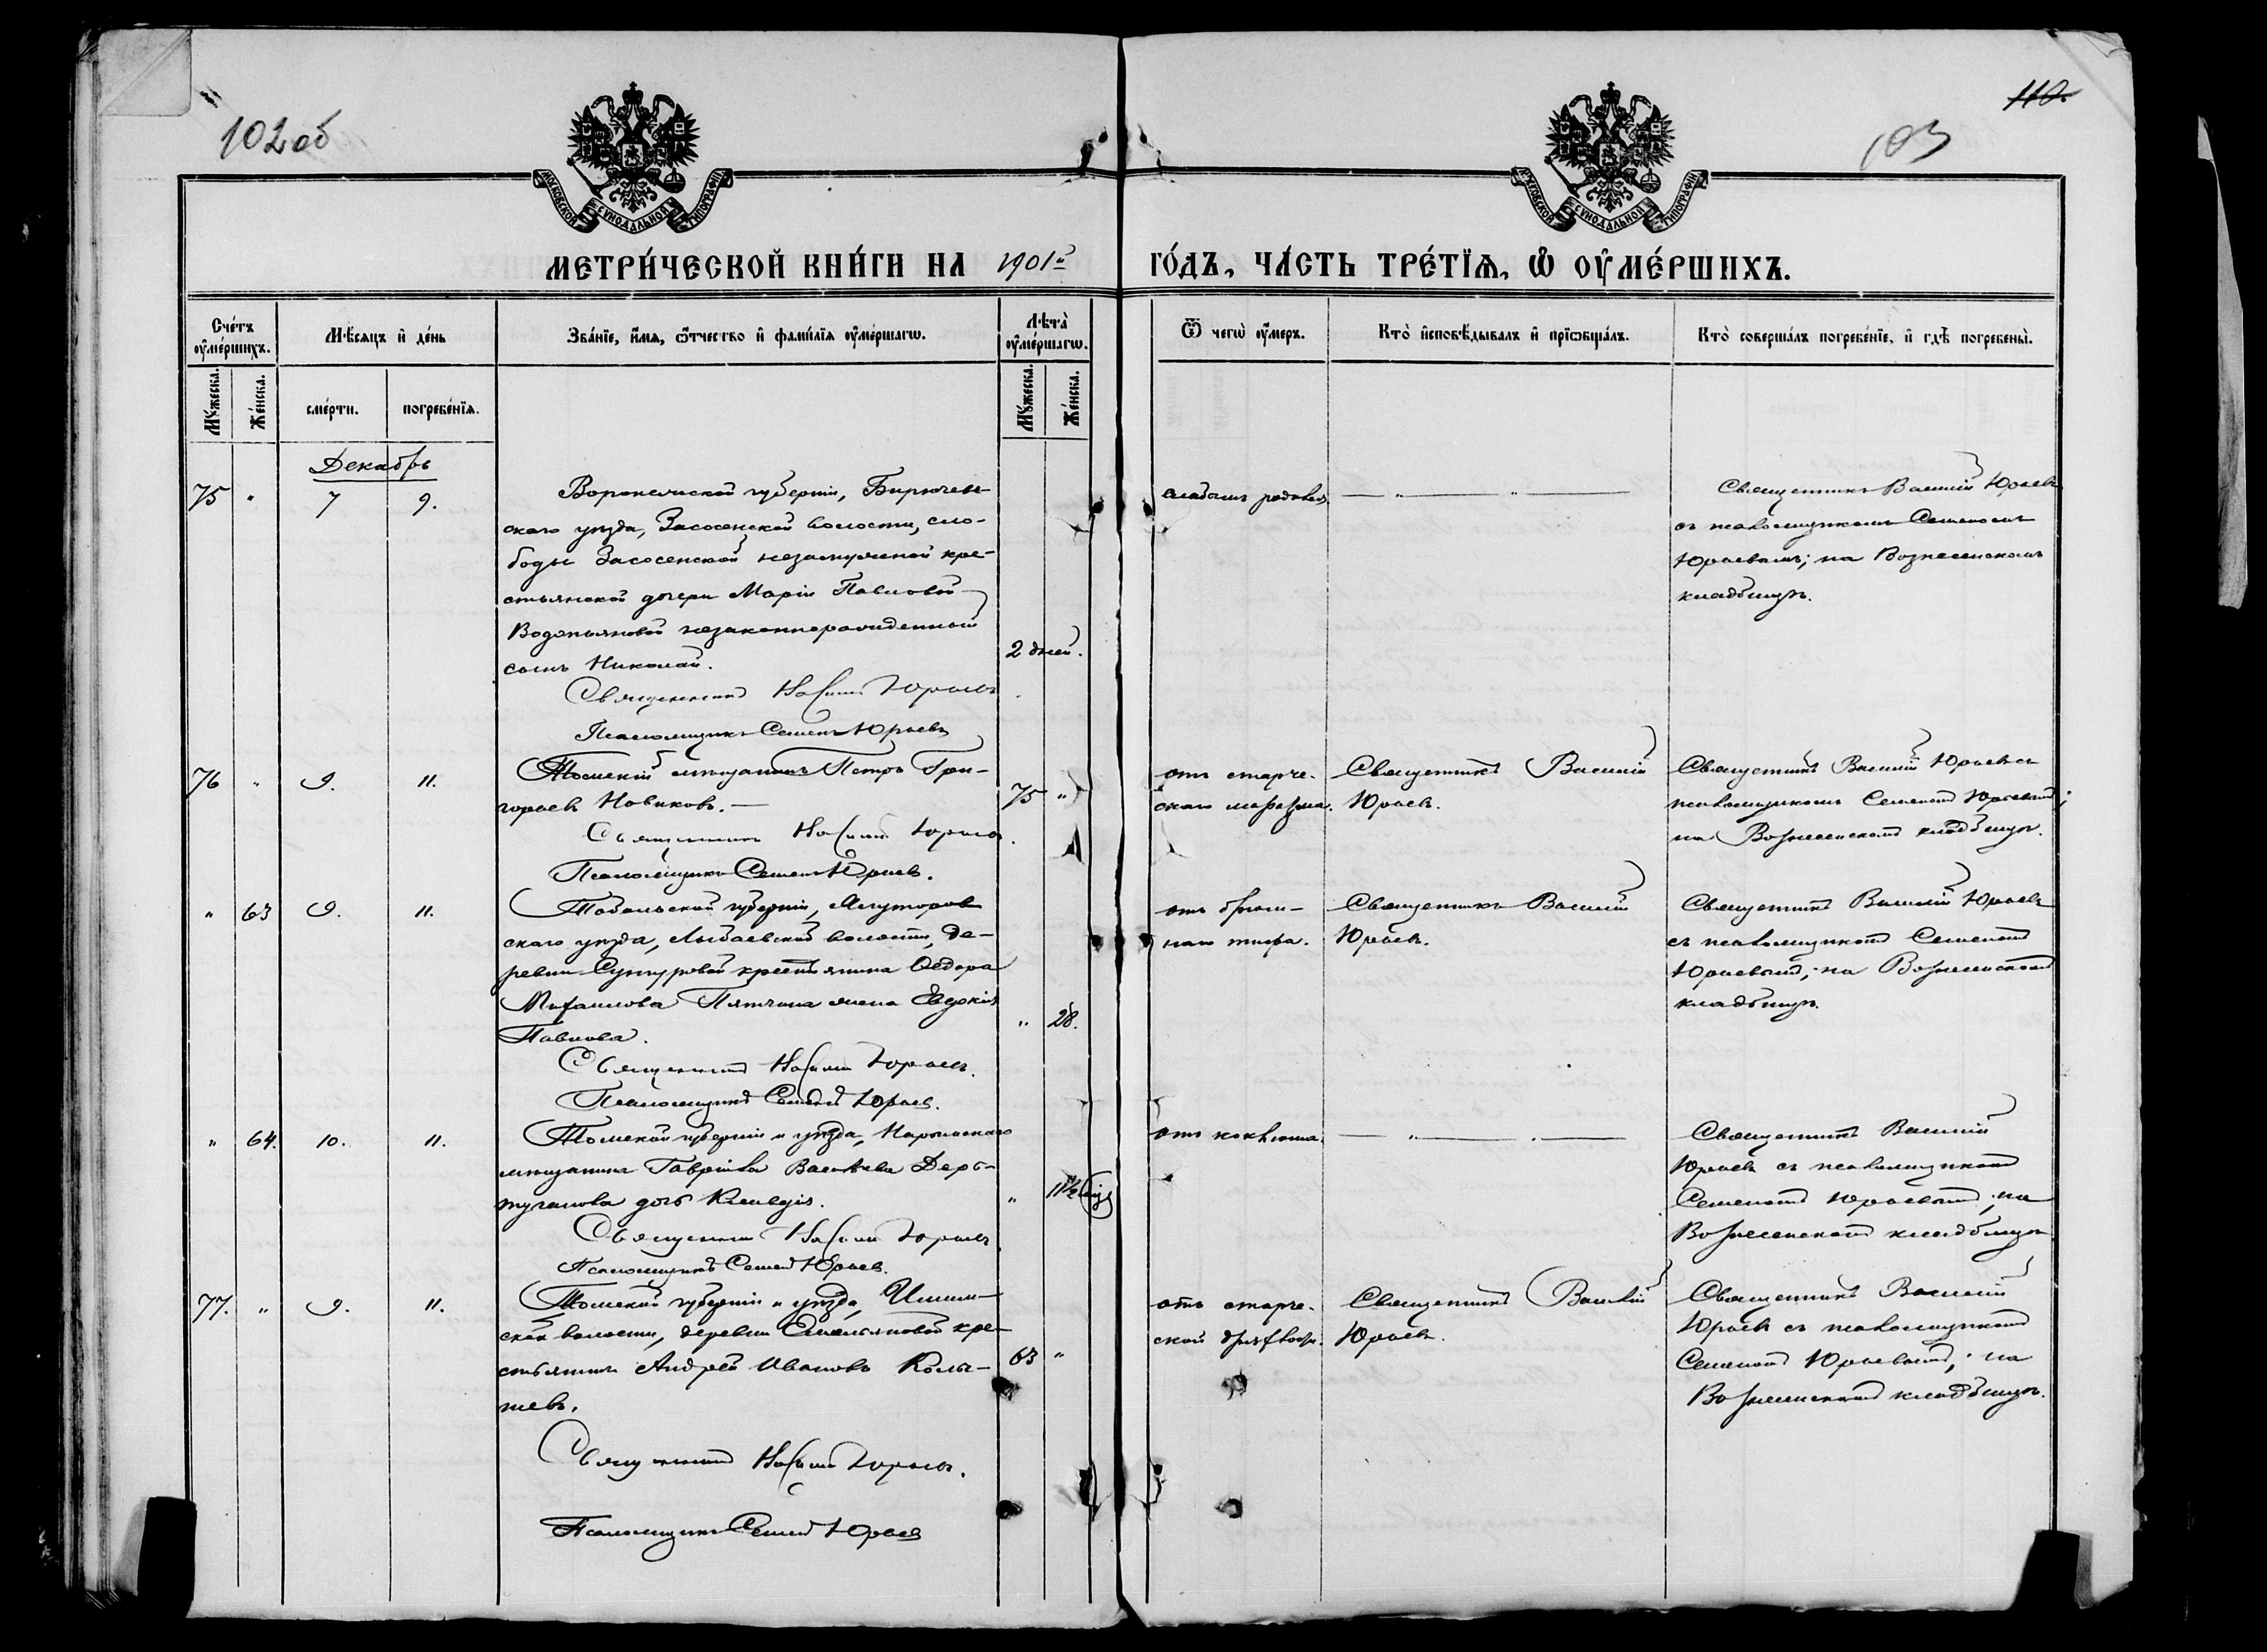 102 об
110.
103
МОСКОВСКОЙ СѴНОДАЛЬНОЙ ТИПОГРАФІИ
МОСКОВСКОЙ СѴНОДАЛЬНОЙ ТИПОГРАФІИ
МЕТРИ́ЧЕСКОЙ КНИ́ГИ НА 1901й ГО́ДЪ, ЧА́СТЬ ТРЕ́ТІѦ, Ѡ ОУ҆МЕ́РШИХЪ.
Сче́тъ оу҆ме́ршихъ.
Мѣ́сяцъ и҆ де́нь
Зва́нїе, и҆́мѧ, ѻ҆́тчество и҆ фами́лїѧ оу҆ме́ршагѡ.
Лѣта̀ оу҆ме́ршагѡ.
Ѿ чегѡ̀ оу҆́меръ.
Кто̀ и҆сповѣ́дывалъ и҆ прїѡбща́лъ.
Кто̀ соверша́лъ погребе́нїе, и҆ гдѣ̀ погребены̀.
Мꙋ́жеска.
Же́нска.
сме́рти.
погребе́нїѧ.
Мꙋ́жеска.
Же́нска.
Декабрь
75 " 7 9.
Воронежской губерніи, Бирючен-
скаго уѣзда, Засосенской волости, сло-
боды Засосенской незамужней кре-
стьянской дочери Маріи Павловой
Водопьяновой незаконнорожденный
сынъ Николай.
2 дней.
Священникъ Василій Юрьевъ.
Псаломщикъ Семенъ Юрьевъ
слабымъ родился
— " — " —
Священникъ Василій Юрьевъ
съ псаломщикомъ Семеномъ
Юрьевымъ; на Вознесенскомъ
кладбищѣ.
76 " 9. 11.
Томскій мѣщанинъ Петръ Гри-
горьевъ Новиковъ. —
75 "
Священникъ Василій Юрьевъ.
Псаломщикъ Семенъ Юрьевъ.
отъ старче-
скаго маразма.
Священникъ Василій
Юрьевъ.
Священникъ Василій Юрьевъ съ
псаломщикомъ Семеномъ Юрьевымъ;
на Вознесенскомъ кладбищѣ.
" 63 9. 11.
Тобольской губерніи, Ялуторов
скаго уѣзда, Лыбаевской волости, де-
ревни Сунгуровой крестьянина Ѳедора
Михаилова Пятчина жена Евдокія
Павлова.
" 28.
Священникъ Василій Юрьевъ.
Псаломщикъ Семенъ Юрьевъ.
отъ брюш-
наго тифа.
Священникъ Василій
Юрьевъ.
Священникъ Василій Юрьевъ
съ псаломщикомъ Семеномъ
Юрьевымъ; на Вознесенскомъ
кладбищѣ.
" 64. 10. 11.
Томской губерніи и уѣзда, Нарымскаго
мѣщанина Гавріила Васильева
дочь Клавдія.
" 11½
Священникъ Василій Юрьевъ
Псаломщикъ Семенъ Юрьевъ.
отъ коклюша.
— " — " —
Священникъ Василій
Юрьевъ съ псаломщикомъ
Семеномъ Юрьевымъ; на
Вознесенскомъ кладбищѣ
77. " 9. 11.
Томской губерніи и уѣзда, Ишим-
ской волости, деревни Емельяновой кре-
стьянинъ Андрей Ивановъ
63 "
Священникъ Василій Юрьевъ.
Псаломщикъ Семенъ Юрьевъ
отъ старче-
ской дряхлости.
Священникъ Василій
Юрьевъ.
Священникъ Василій
Юрьевъ съ псаломщикомъ
Семеномъ Юрьевымъ; на
Вознесенскомъ кладбищѣ.